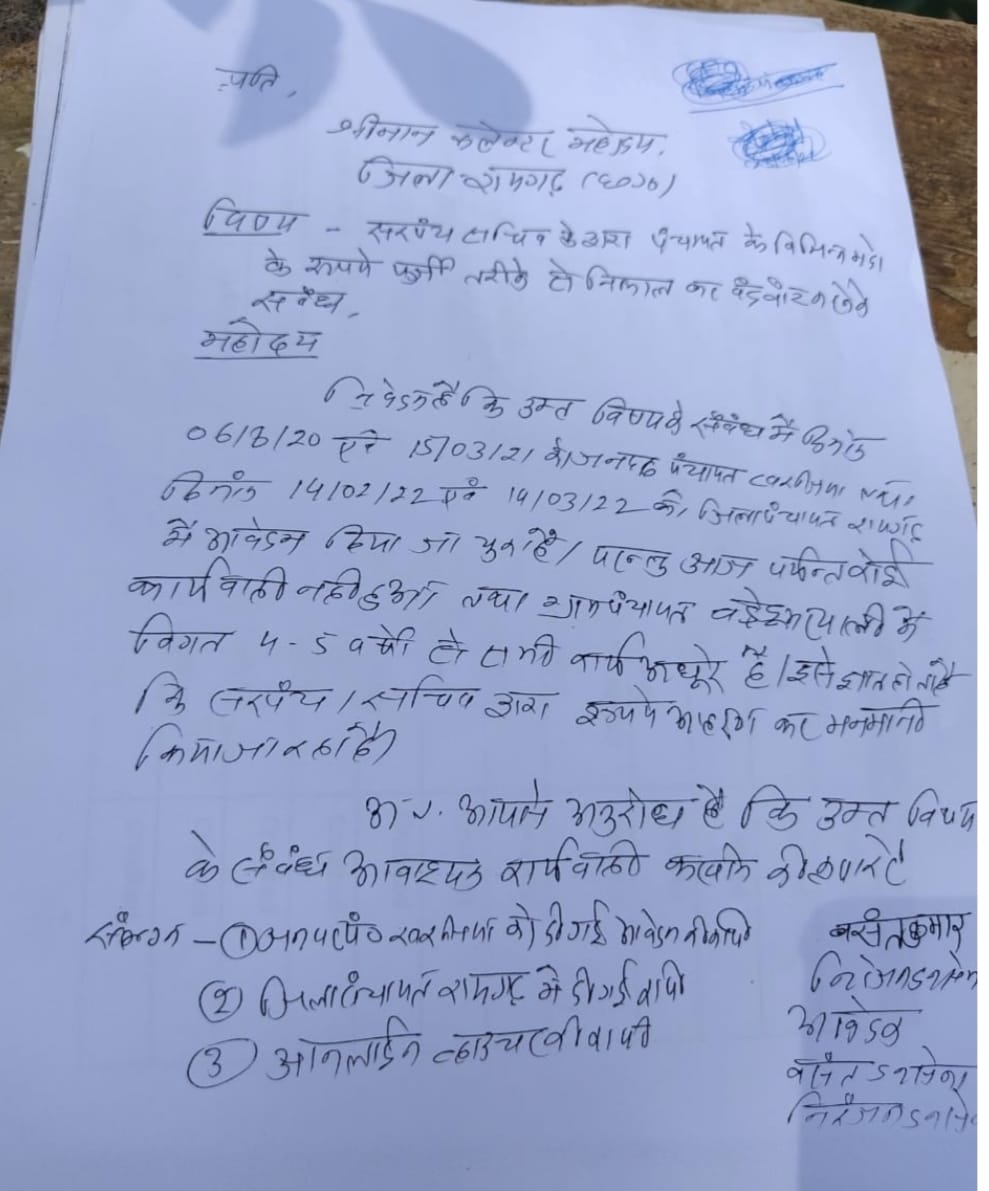 प्रति,
श्रीमान कलेक्टर महोदय,
जिला रायगढ़ (छ०ग०)
विषय - सरपंच सचिव के द्वारा पंचायत के विभिन्न मदो
के रूपये फर्जी तरीके से निकाल कर
संबंध,
महोदय
निवेदन है कि उक्त विषय के संबंध में दिनांक
06/8/20 एवं 15/03/21 को जनपद पंचायत खरसिया तथा
दिनांक 14/02/22 एवं 14/03/22 को जिला पंचायत रायगढ़
में आवेदन दिया जा चुका है। परन्तु आज पर्यन्त कोई
कार्यवाही नही हुआ तथा ग्राम पंचायत में
विगत 4-5 वर्षो से सभी कार्य अधूरे है। इसे ज्ञात होता है
कि सरपंच / सचिव द्वारा रूपये आहरण कर मनमानी
किया जा रहा है।
अतः आपसे अनुरोध है कि उक्त विषय
के संबंध आवश्यक कार्यवाही करने की कृपा करें
संलग्न - ① जनपद पं० खरसिया को दी गई आवेदन की कापी
② जिला पंचायत रायगढ़ में दी गई कापी
③ ऑनलाईन व्हाउचर की कापी
बसंत कुमार
निरंजन डनसेना
आवेदक
बसंत डनसेना
निरंजन डनसे